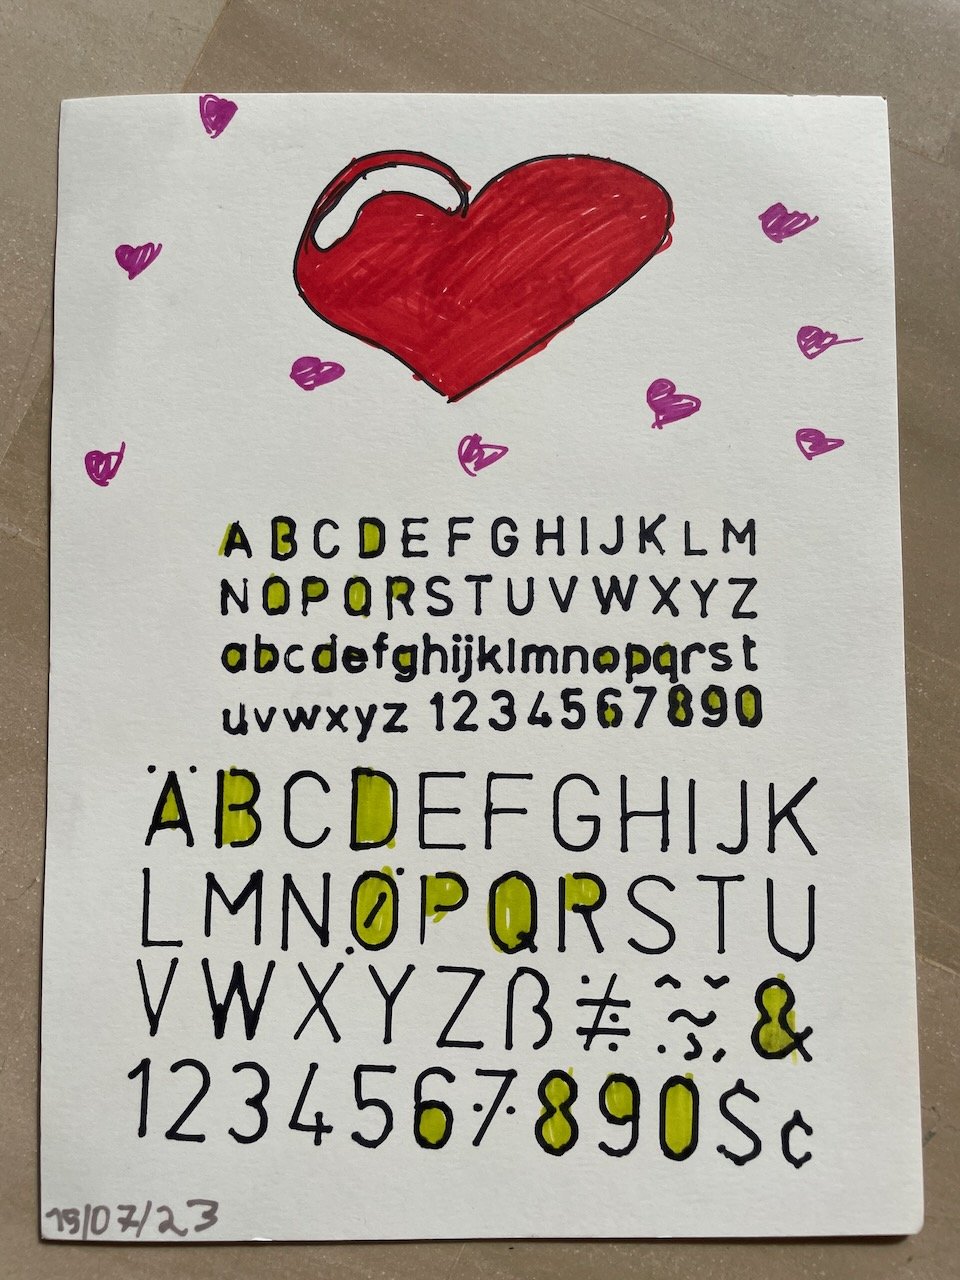 ABCDEFGHIJKLM
NOPQRSTUVWXYZ
abcdefghijklmnopqrst
uvwxyz 1234567890
ÄBCDEFGHIJK
LMNØPQRSTU
VWXYZß &
1234567890$¢
15/07/23